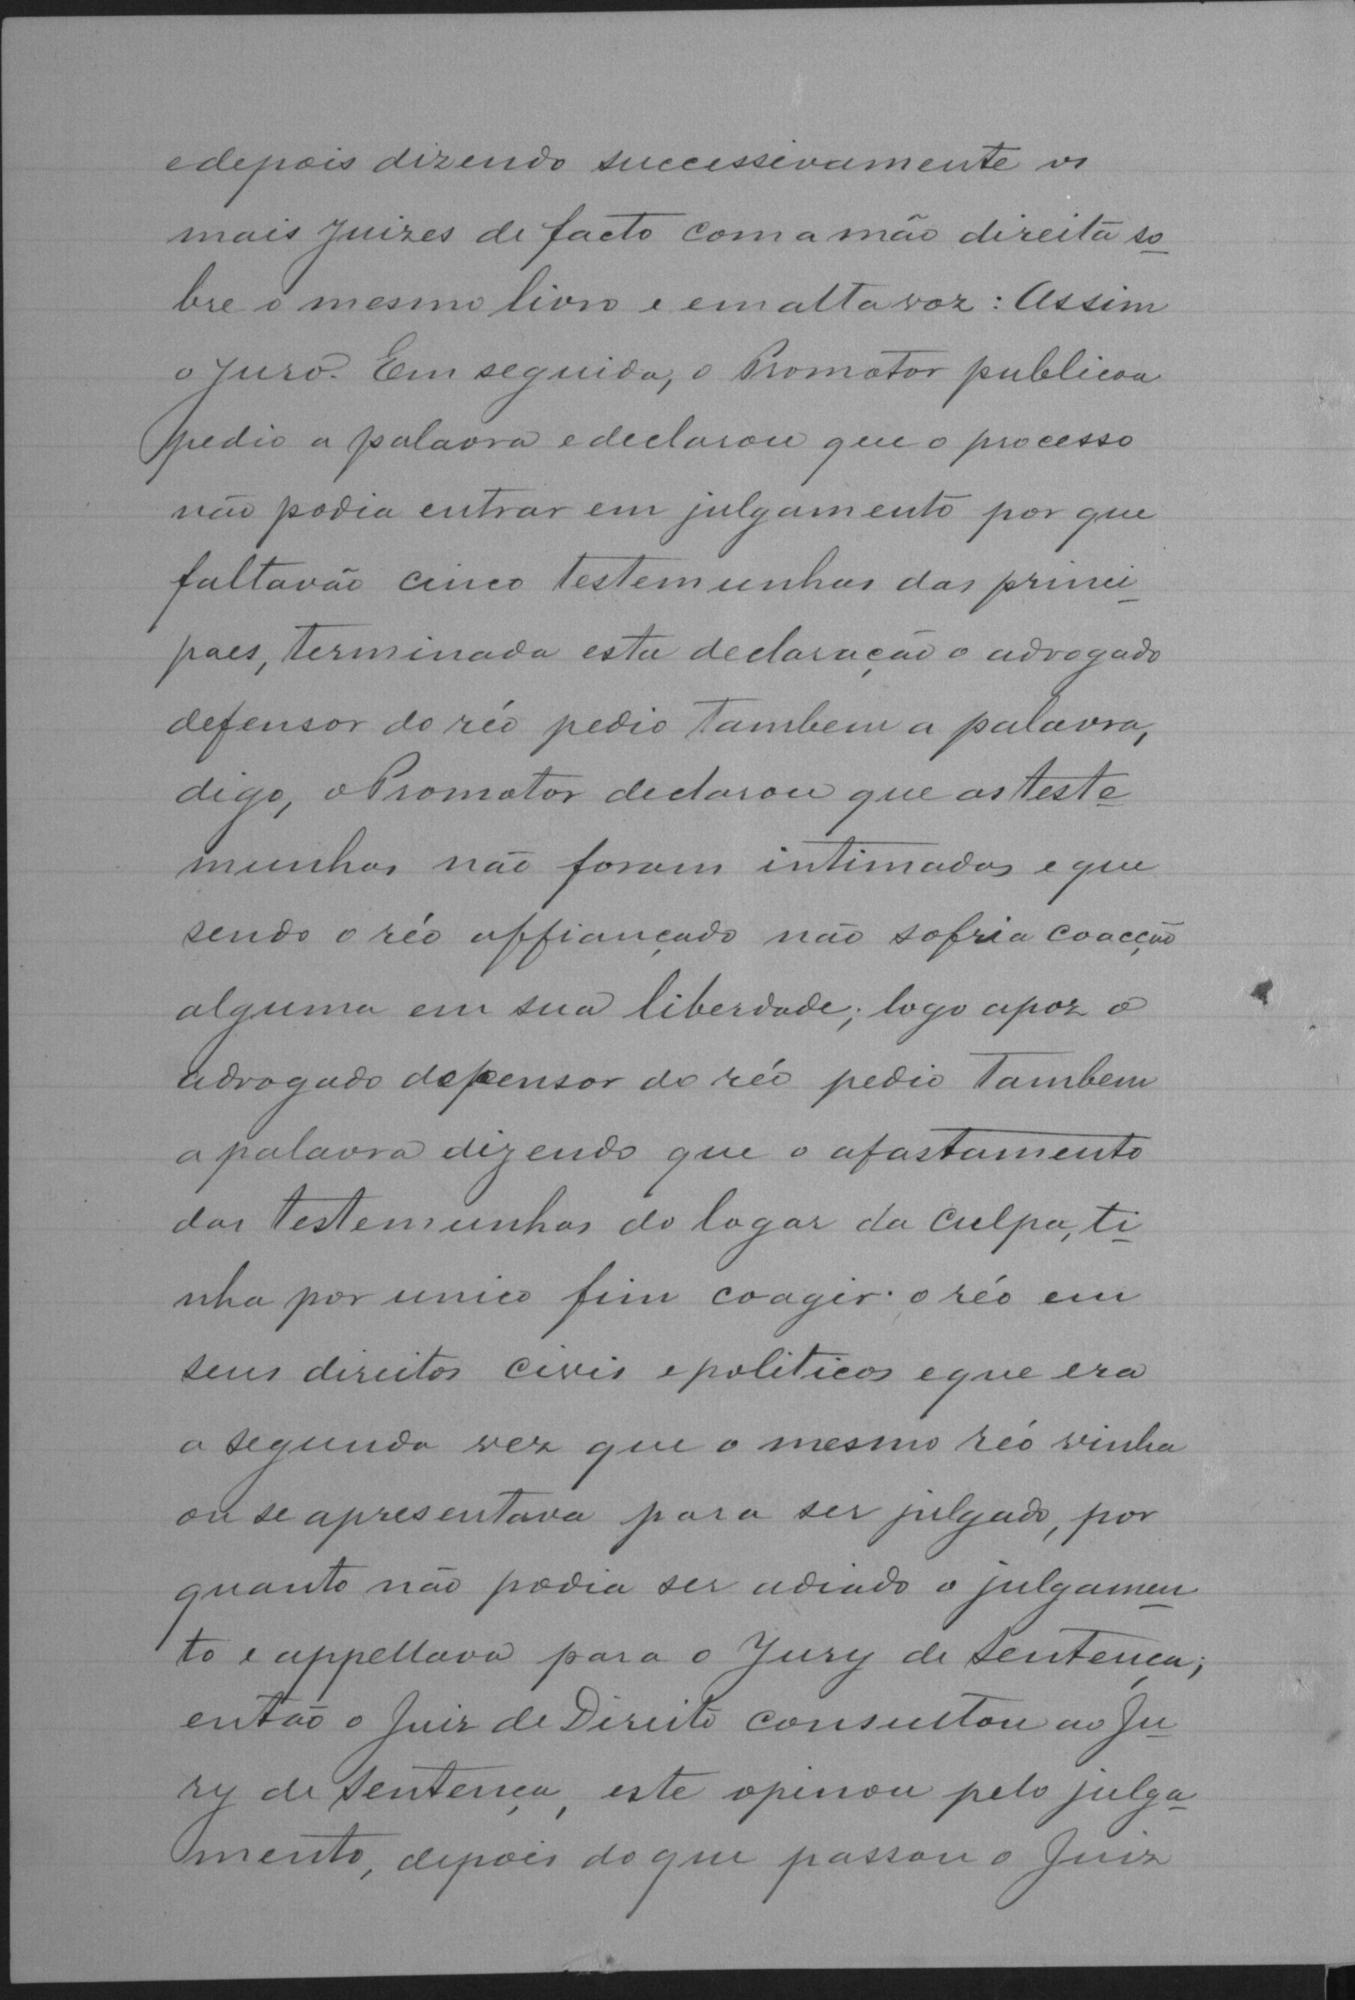 e depois dizendo successivamente os
mais Juizes de facto com a mão direita so
bre o mesmo livro e em alta voz: Assim
o juro. Em seguida, o Promotor publico
pedio a palavra e declarou que o processo
não podia entrar em julgamento por que
faltavão cinco testemunhas das princi
paes, terminada esta declaração o advogado
defensor do réo pedio tambem a palavra,
digo, o Promotor declarou que as teste
munhas não foram intimadas e que
sendo o réo affiançado não sofria coacção
alguma em sua liberdade; logo apoz o
advogado defensor do réo pedio tambem
a palavra dizendo que o afastamento
das testemunhas do logar da culpa, ti
nha por unico fim coagir o réo em
seus direitos civis e politicos e que era
a segunda vez que o mesmo réo vinha
ou se apresentava para ser julgado, por
quanto não podia ser adiado o julgamen
to e appellava para o Jury de Sentença;
então o Juiz de Direito consultou ao Ju
ry de Sentença, este opinou pelo julga
mento, depois do que passou o Juiz